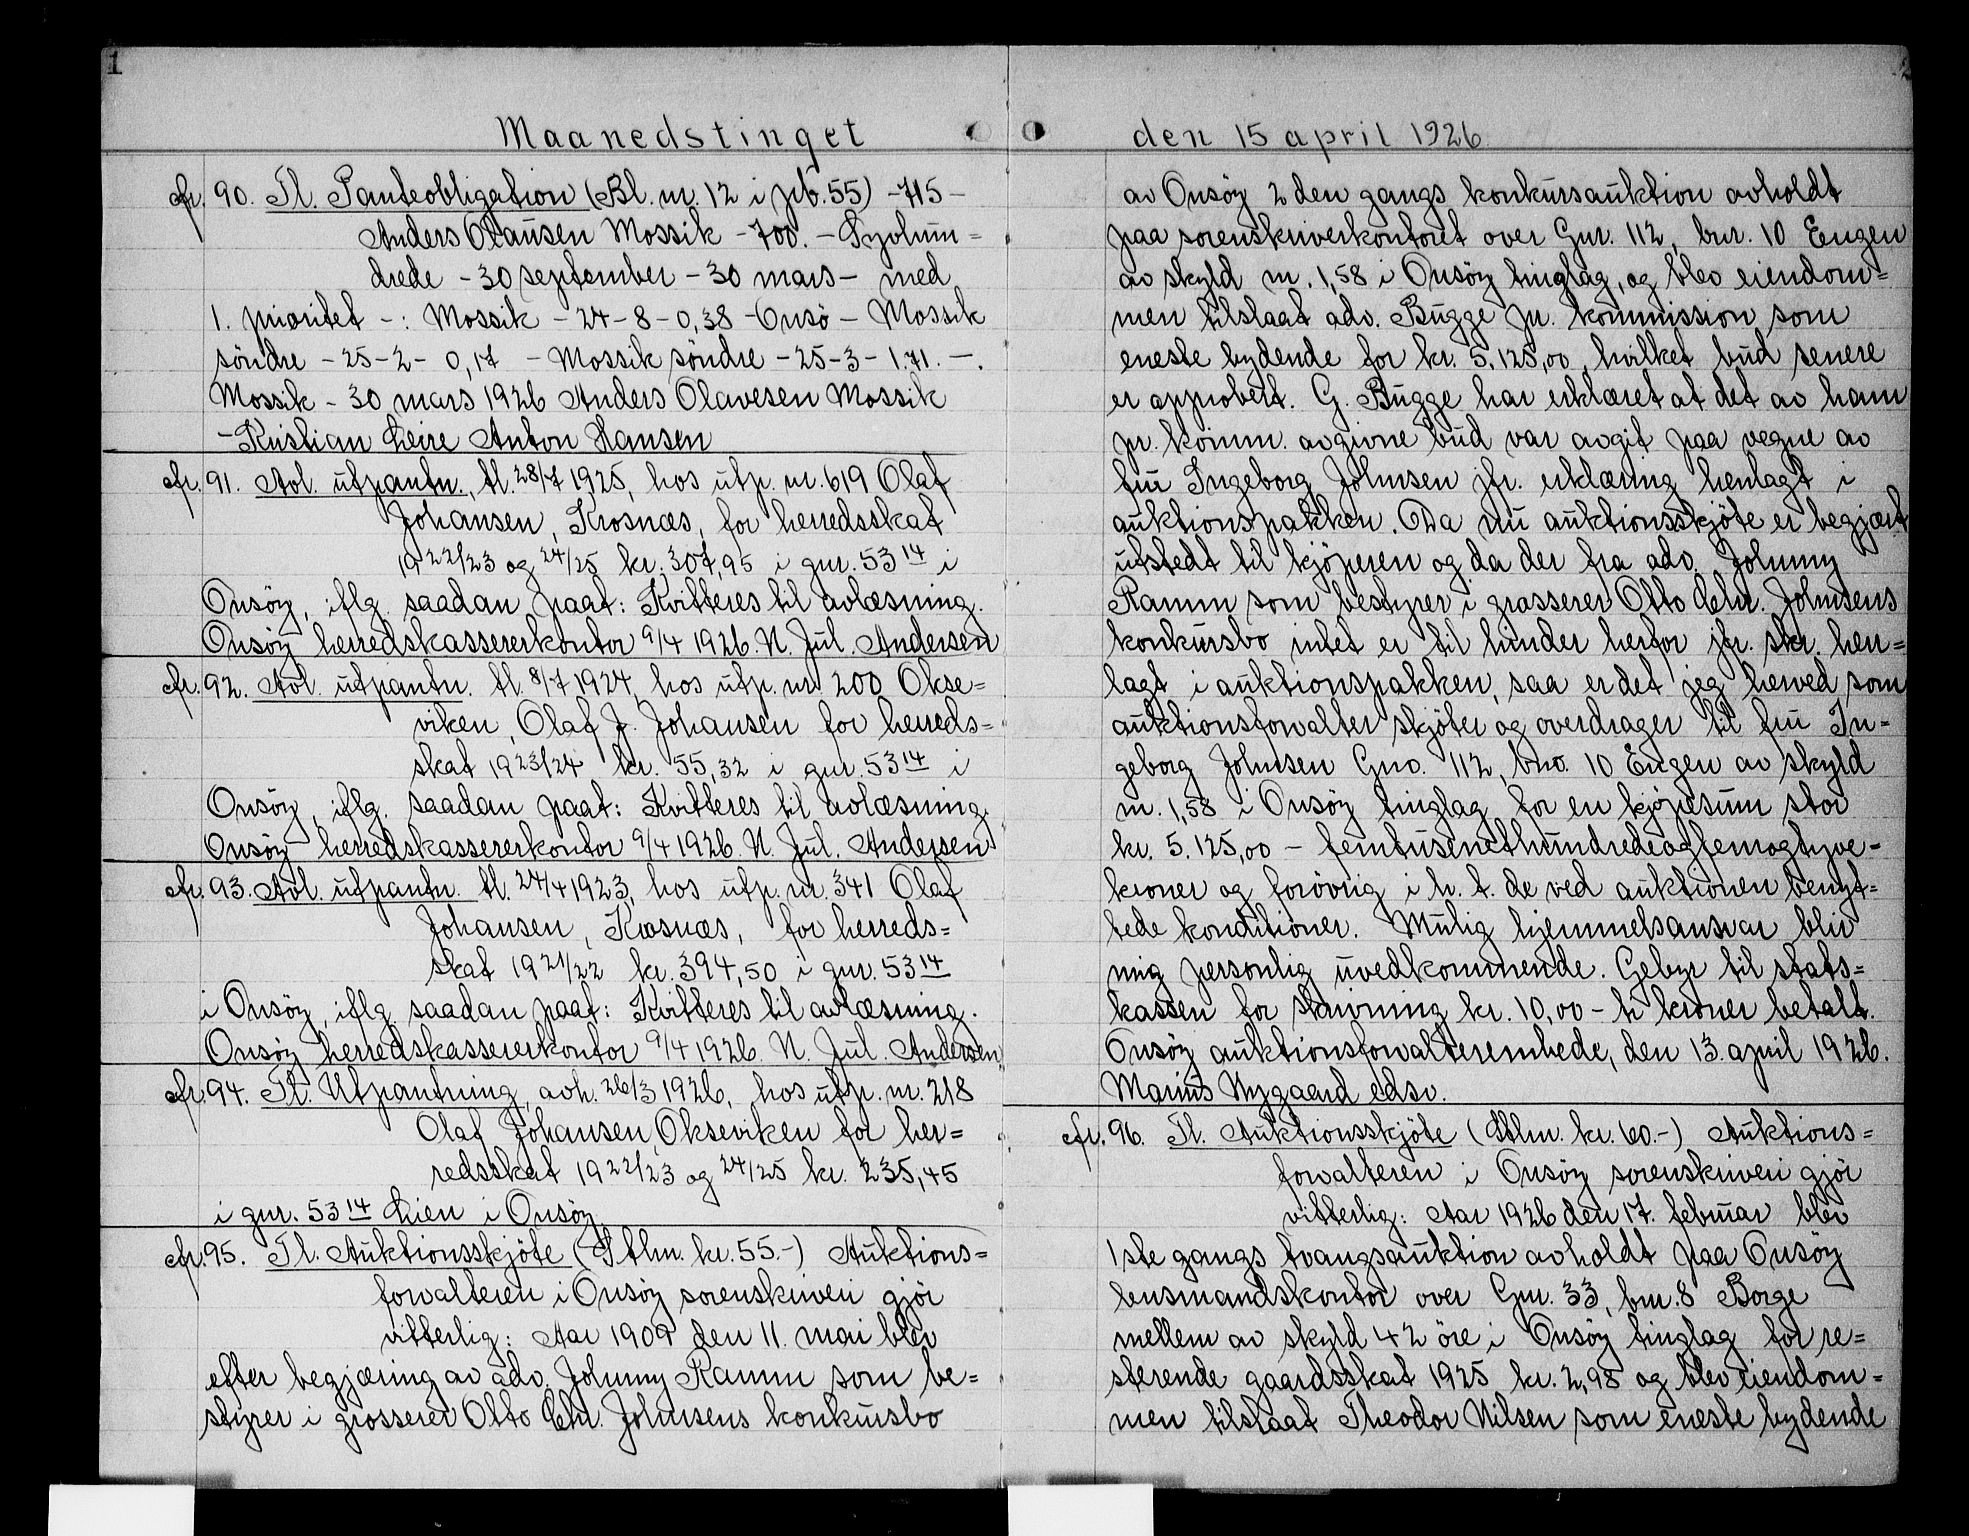 1
Maanedstinget
cfr. 90. Tl. Panteobligation (Bl. nr. 12 i pb. 55) - 715 -
Anders Olausen Mossik - 700. - Syvhun=
drede - 30 september - 30 mars - med
1. prioritet - : Mossik - 24 - 8 - 0,38 - Onsö - Mossik
söndre - 25 - 2 - 0,17 - Mossik söndre - 25 - 3 - 1.71. -.
Mossik - 30 mars 1926 Anders Olavesen Mossik
- Kristian Leire Anton Hansen
cfr. 91. Avl. utpantn., tl. 28/7 1925, hos utp. nr. 619 Olaf
Johansen, Krosnæs, for herredsskat
1922/23 og 24/25 kr. 307,95 i gnr. 53 14 i
Onsöy, iflg. saadan paat: Kvitteres til avlæsning.
Onsöy herredskassererkontor 9/4 1926. N. Jul. Andersen
cfr. 92. Avl. utpantn. tl. 8/7 1924, hos utp. nr. 200 Okse=
viken, Olaf J. Johansen for herreds=
skat 1923/24 kr. 55,32 i gnr. 53 14 i
Onsöy, iflg. saadan paat: Kvitteres til avlæsning.
Onsöy herredskassererkontor 9/4 1926 N. Jul. Andersen
cfr. 93. Avl. utpantn. tl. 24/4 1923, hos utp. nr. 341 Olaf
Johansen, Krosnæs, for herreds=
skat 1921/22 kr. 394,50 i gnr. 53 14
i Onsöy, iflg. saadan paat: Kvitteres til avlæsning.
Onsöy herredskassererkontor 9/4 1926. N. Jul. Andersen
cfr. 94. Tl. Utpantning, avh. 26/3 1926, hos utp. nr. 218
Olaf Johansen, Okseviken for her=
redsskat 1922/23 og 24/25 kr. 235,45
i gnr. 53 14 Lien i Onsöy.
cfr. 95. Tl. Auktionsskjöte (Stlm. kr. 55.-) Auktions=
forvalteren i Onsöy sorenskriveri gjör
vitterlig: Aar 1909 den 11. mai blev
efter begjæring av adv. Johnny Ramm som be=
styrer i grosserer Otto Chr. Johnsens konkursbo
2
den 15 april 1926
av Onsöy 2den gangs konkursauktion avholdt
paa sorenskriverkontoret over Gnr. 112, bnr. 10 Engen
av skyld m. 1,58 i Onsöy tinglag, og blev eiendom=
men tilslaat adv. Bugge pr. kommission som
eneste bydende for kr. 5.125,00, hvilket bud senere
er approbert. G. Bugge har erklæret at det av ham
pr. komm. avgivne bud var avgit paa vegne av
fru Ingeborg Johnsen jfr. erklæring henlagt i
auktionspakken. Da nu auktionsskjöte er begjært
utstedt til kjöperen og da der fra adv. Johnny
Ramm som bestyrer i grosserer Otto Chr. Johnsens
konkursbo intet er til hinder herfor jfr. skr. hen=
lagt i auktionspakken, saa er det jeg herved som
auktionsforvalter skjöter og overdrager til fru In=
geborg Johnsen Gno. 112, bno. 10 Engen av skyld
m. 1,58 i Onsöy tinglag for en kjöpesum stor
kr. 5.125,00 - femtusenethundredeogfemogtyve=
kroner og forövrig i h. t. de ved auktionen benyt=
tede konditioner. Mulig hjemmelsansvar blir
mig personlig uvedkommende. Gebyr til stats=
kassen for skrivning kr. 10,00 - ti kroner betalt.
Onsöy auktionsforvalterembede, den 13. april 1926.
Marius Nygaard edsv.
cfr. 96. Tl. Auktionsskjöte (Stlm. kr. 60.-) Auktions=
forvalteren i Onsöy sorenskriveri gjör
vitterlig: Aar 1926 den 17. februar blev
1ste gangs tvangsauktion avholdt paa Onsöy
lensmandskontor over Gnr. 33, bnr. 8 Borge
mellem av skyld 42 öre i Onsöy tinglag for re=
sterende gaardsskat 1925 kr. 2,98 og blev eiendom=
men tilslaat Theodor Nilsen som eneste bydende